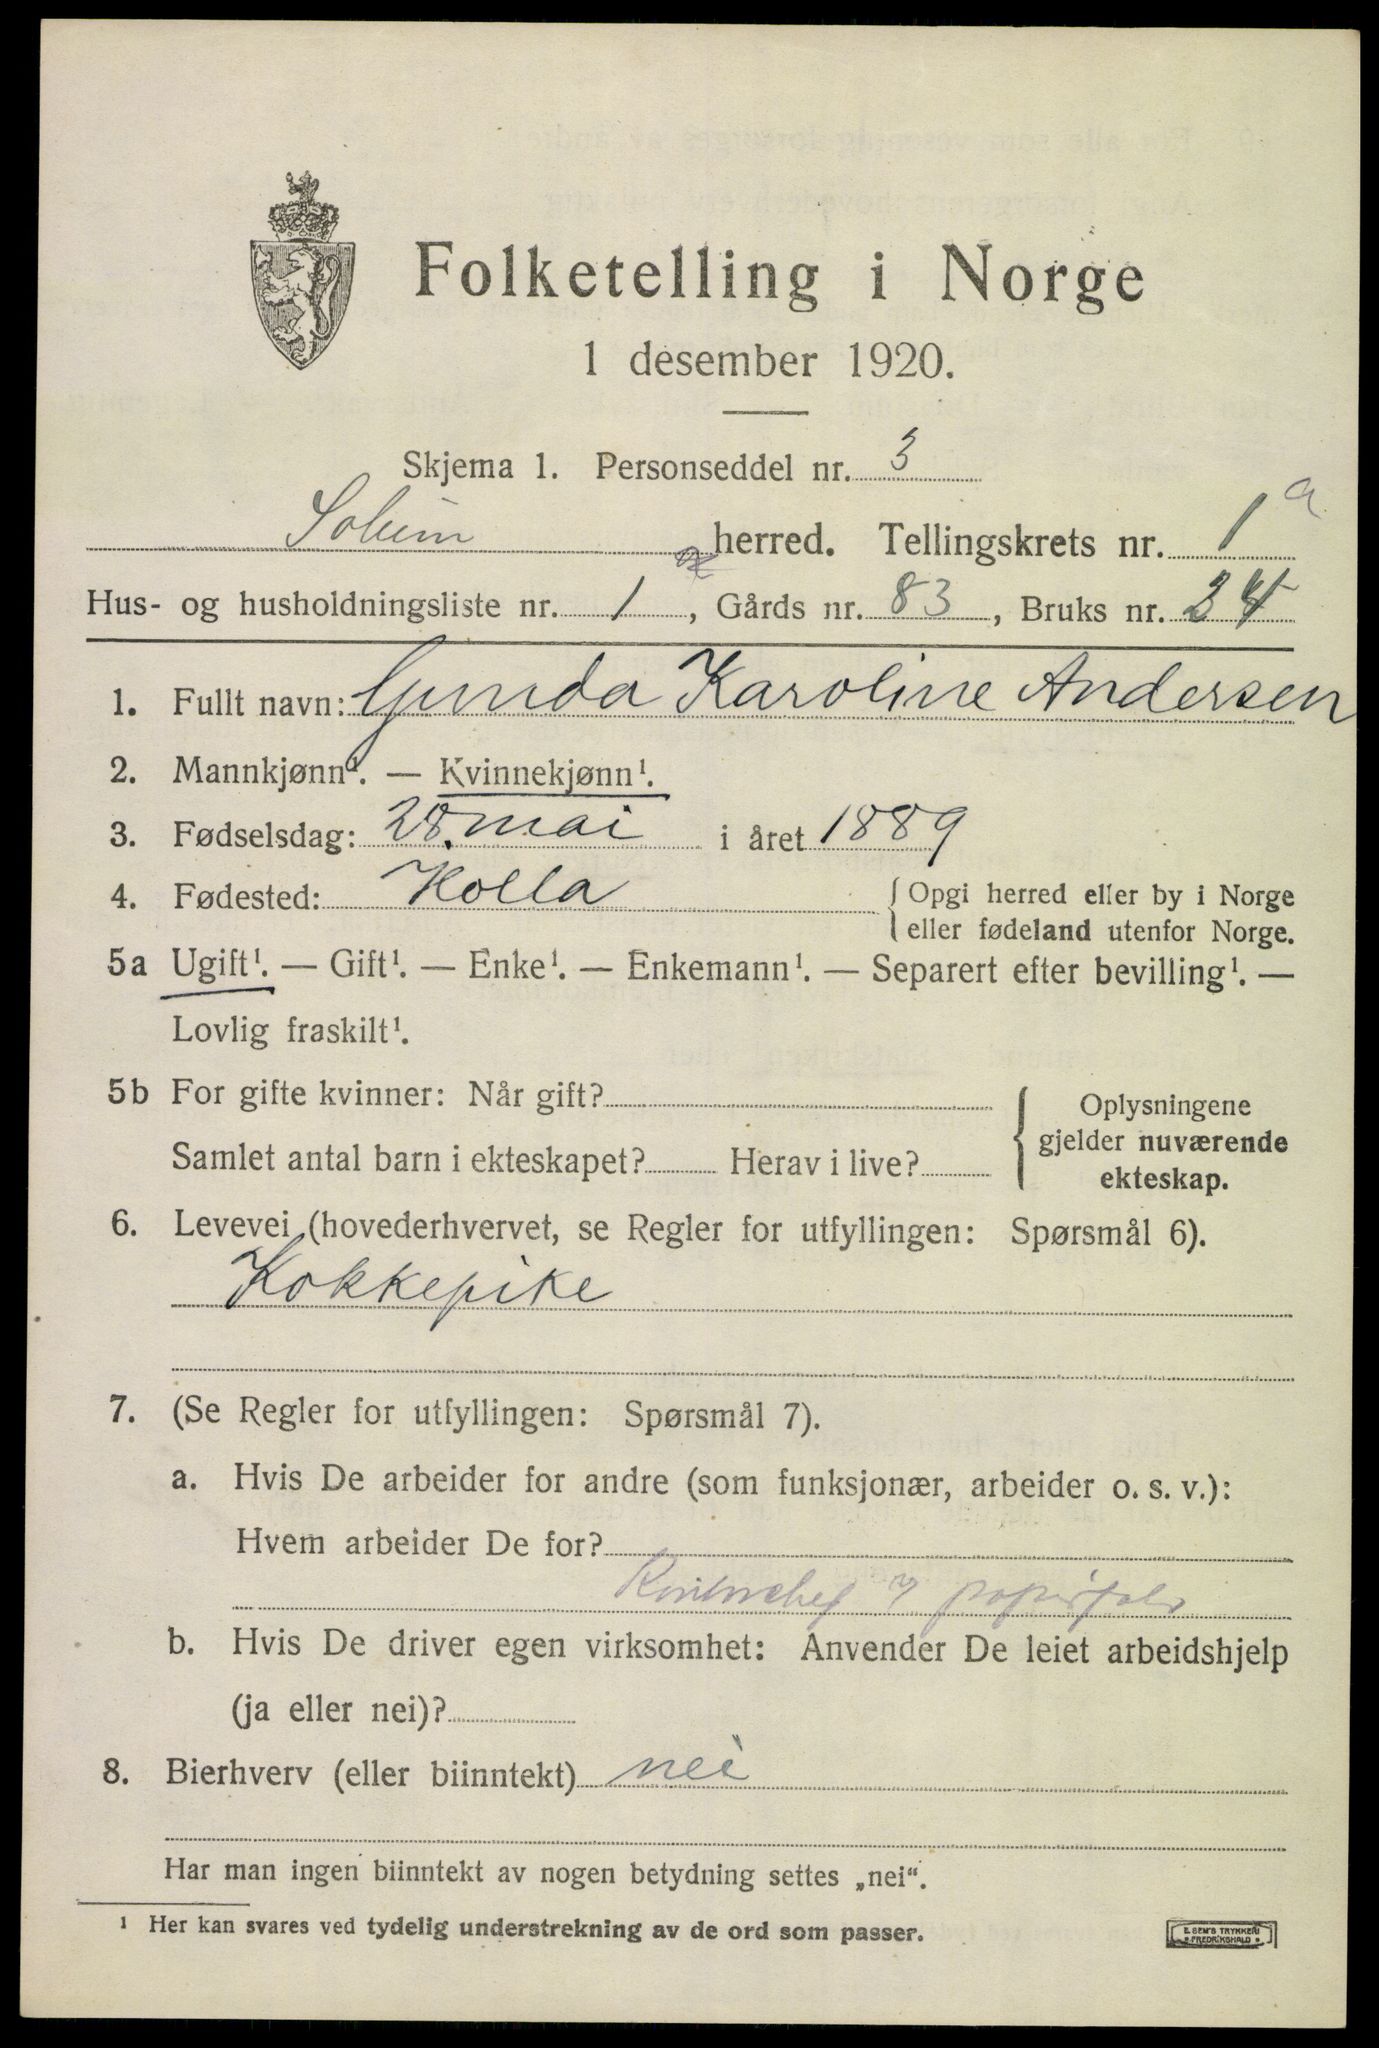 Folketelling i Norge
1 desember 1920.
Skjema 1. Personseddel nr. 3
Solum herred. Tellingskrets nr. 1 a
Hus- og husholdningsliste nr. 1, Gårds nr. 83, Bruks nr. 24
1. Fullt navn: Gunda Karoline Andersen
2. Mannkjønn¹. — Kvinnekjønn¹.
3. Fødselsdag: 28. mai i året 1889
4. Fødested: Holla { Opgi herred eller by i Norge
eller fødeland utenfor Norge.
5a Ugift¹. — Gift¹. — Enke¹. — Enkemann¹. — Separert efter bevilling¹. —
Lovlig fraskilt¹.
5b For gifte kvinner: Når gift?
Samlet antal barn i ekteskapet? Herav i live?
{ Oplysningene
gjelder nuværende
ekteskap.
6. Levevei (hovederhvervet, se Regler for utfyllingen: Spørsmål 6).
Kokkepike
7. (Se Regler for utfyllingen: Spørsmål 7).
a. Hvis De arbeider for andre (som funksjonær, arbeider o. s. v.):
Hvem arbeider De for?
Kontorchef papirfabr
b. Hvis De driver egen virksomhet: Anvender De leiet arbeidshjelp
(ja eller nei)?
8. Bierhverv (eller biinntekt) nei
Har man ingen biinntekt av nogen betydning settes „nei“.
¹ Her kan svares ved tydelig understrekning av de ord som passer.
E. SEM'S TRYKKERI
FREDRIKSHALD